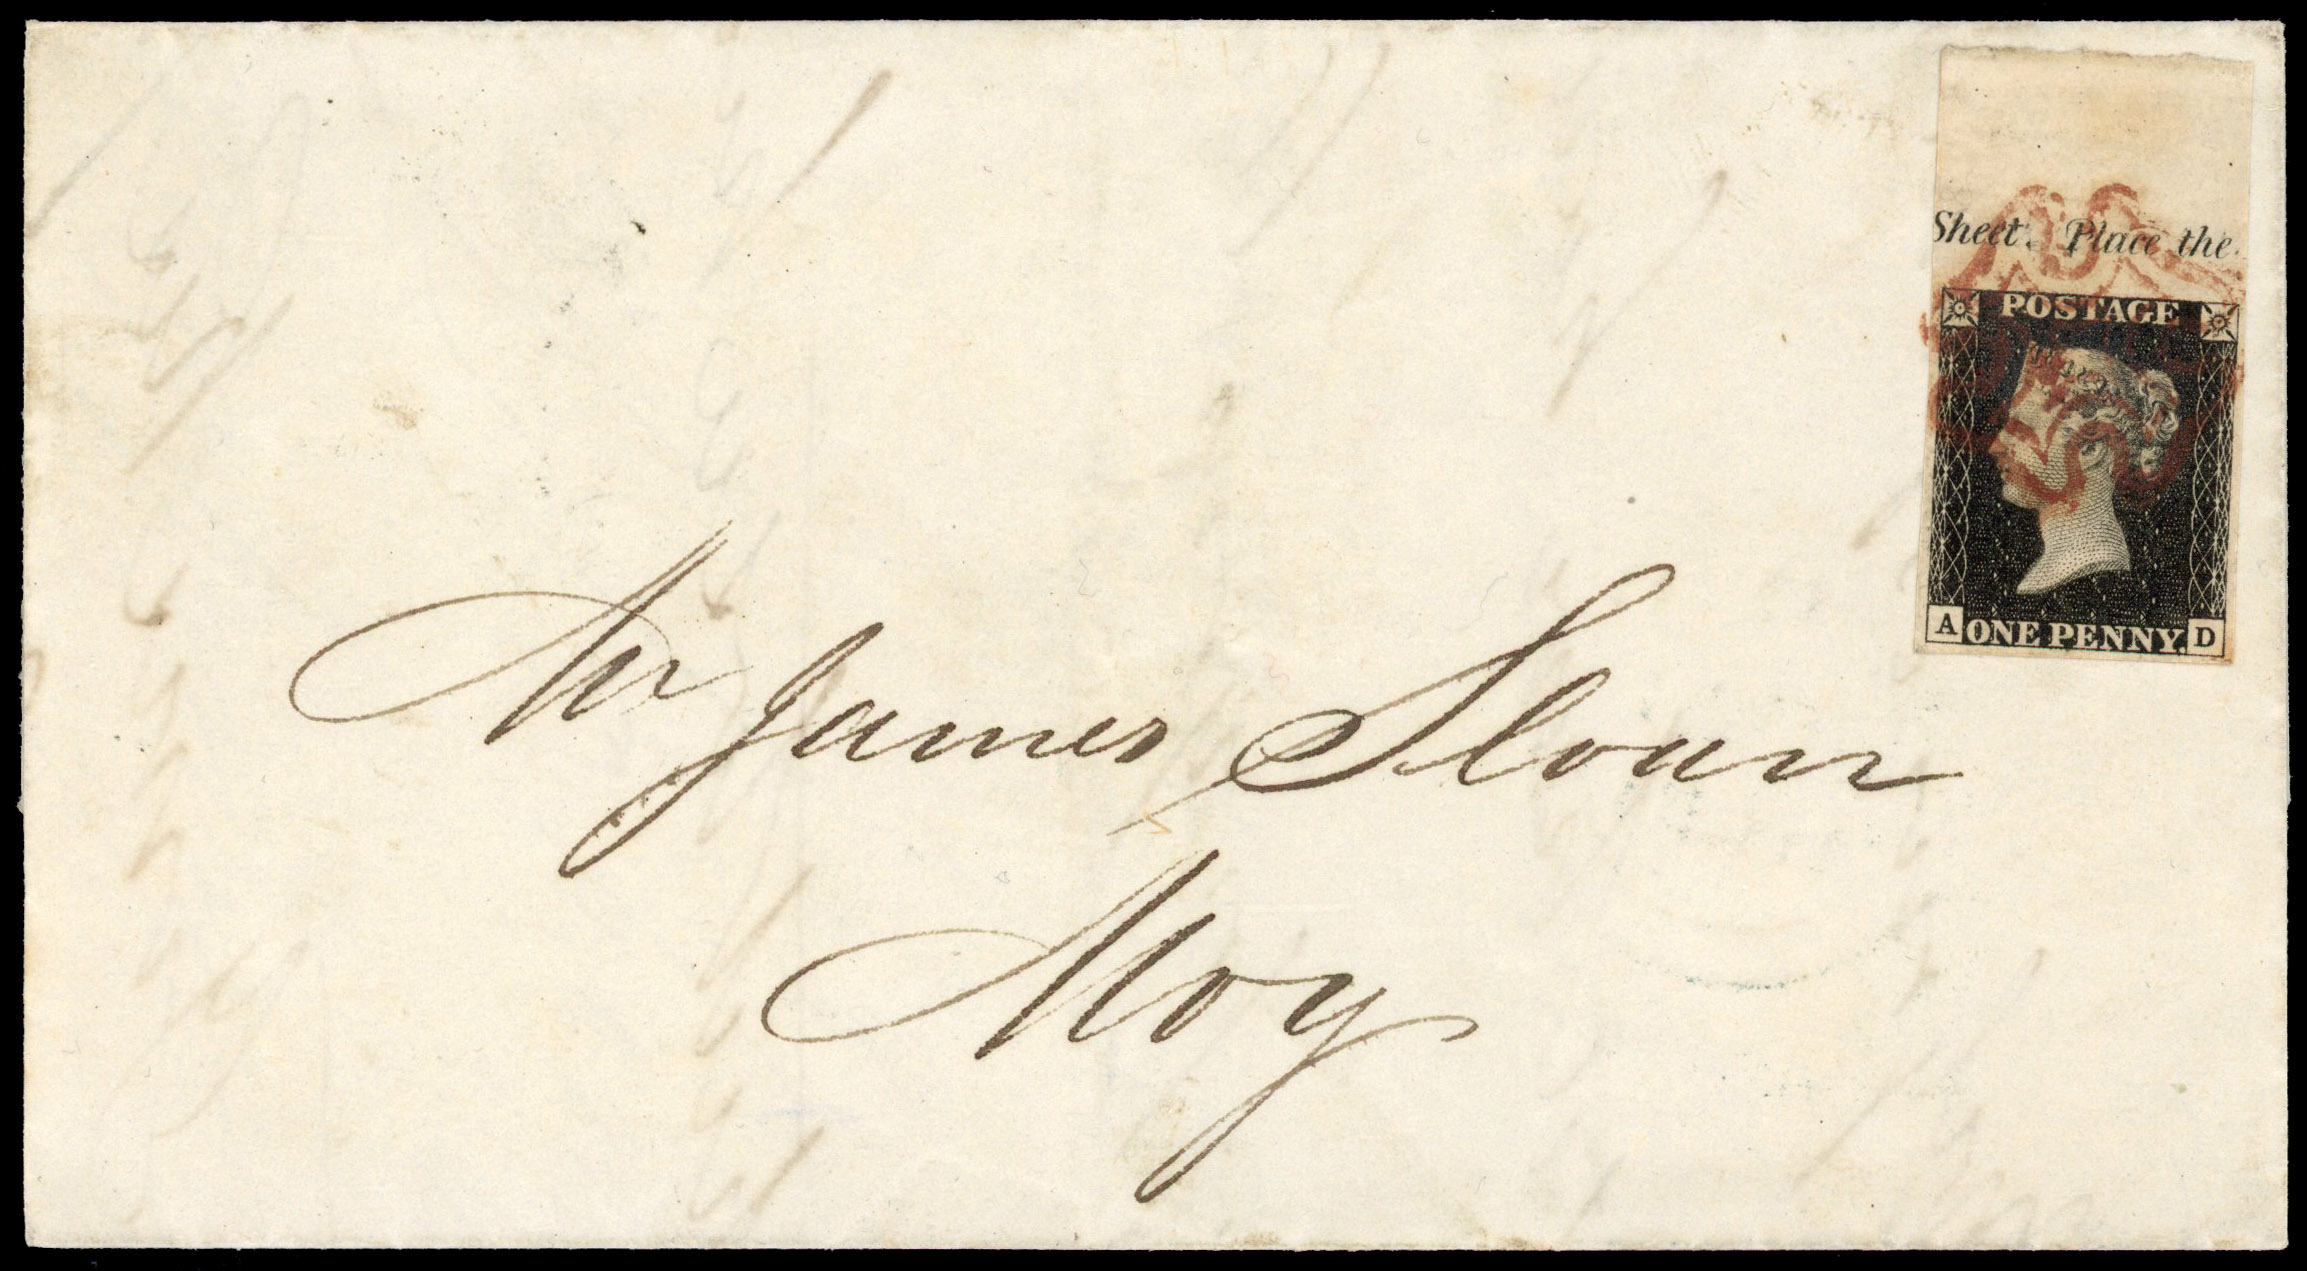 Sheet. Place the
POSTAGE
A ONE PENNY. D
Mr James Sloan
Moy